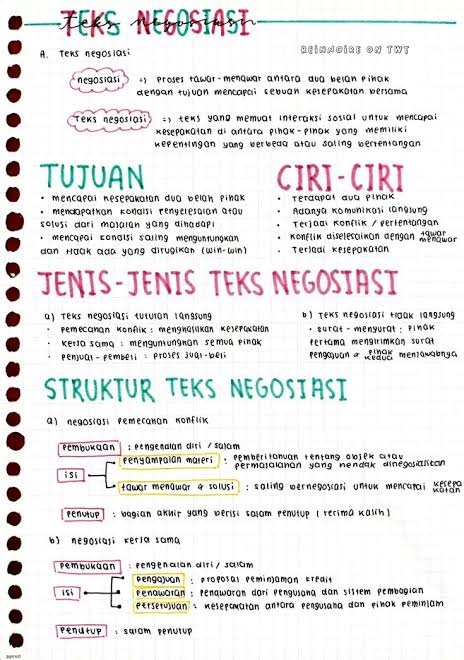 TEKS NEGOSIASI
teks negosiasi
REINNOIRE ON TWT
A. Teks negosiasi
negosiasi => proses tawar-menawar antara dua belah pihak
dengan tujuan mencapai sebuah kesepakatan bersama
Teks negosiasi => teks yang memuat interaksi sosial untuk mencapai
kesepakatan di antara pihak-pihak yang memiliki
kepentingan yang berbeda atau saling bertentangan
TUJUAN
• mencapai kesepakatan dua belah pihak
• mendapatkan kondisi penyelesaian atau
solusi dari masalah yang dihadapi
• mencapai kondisi saling menguntungkan
dan tidak ada yang dirugikan (win-win)
CIRI-CIRI
• Terdapat dua pihak
• Adanya komunikasi langsung
• Terjadi konflik / pertentangan
• konflik diselesaikan dengan tawar menawar
• Terjadi kesepakatan
JENIS-JENIS TEKS NEGOSIASI
a) Teks negosiasi tuturan langsung
• pemecahan konflik : menghasilkan kesepakatan
• kerja sama : menguntungkan semua pihak
• penjual-pembeli : proses jual-beli
b) Teks negosiasi tidak langsung
• surat-menyurat : pihak
pertama mengirimkan surat
pengajuan & pihak kedua menjawabnya
STRUKTUR TEKS NEGOSIASI
a) negosiasi pemecahan konflik
pembukaan : pengenalan diri / salam
isi
penyampaian materi : pemberitahuan tentang objek atau
permasalahan yang hendak dinegosiasikan
tawar menawar & solusi : saling bernegosiasi untuk mencapai kesepakatan
penutup : bagian akhir yang berisi salam penutup (terima kasih)
b) negosiasi kerja sama
pembukaan : pengenalan diri / salam
isi
pengajuan : proposal peminjaman kredit
penawaran : penawaran dari pengusaha dan sistem pembagian
persetujuan : kesepakatan antara pengusaha dan pihak peminjam
penutup : salam penutup